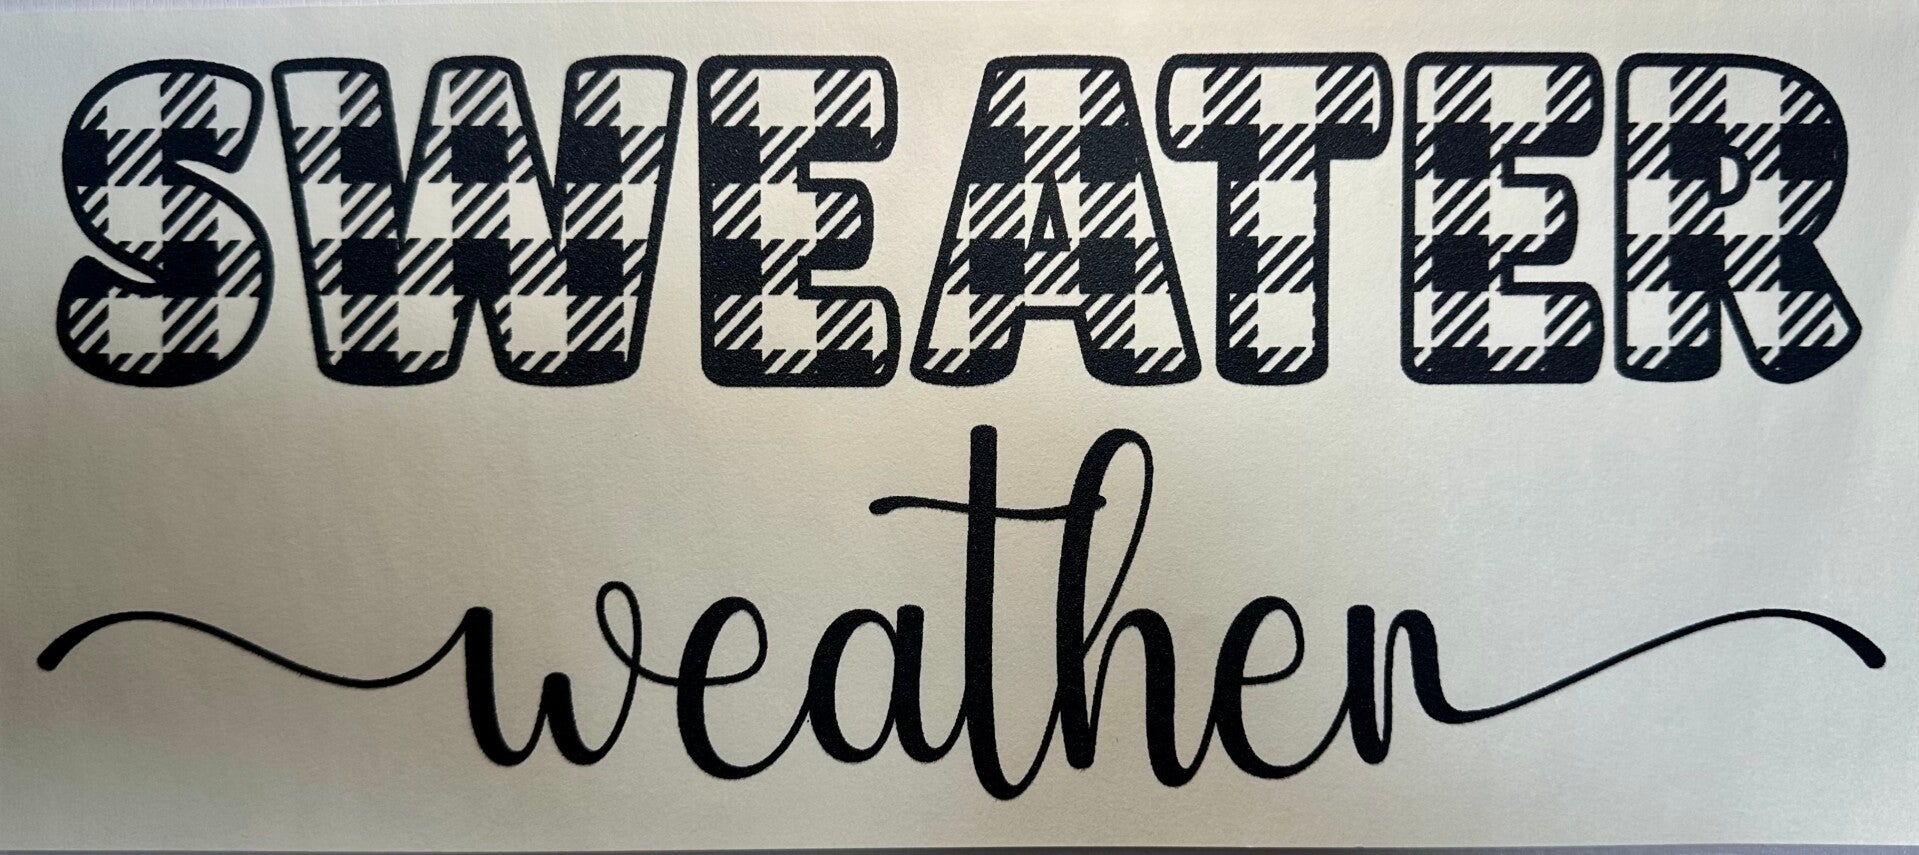 SWEATER
weather